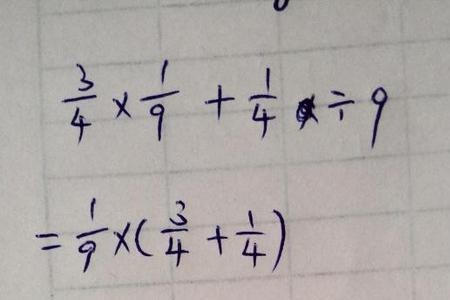 3/4 × 1/9 + 1/4 ÷ 9
= 1/9 × (3/4 + 1/4)